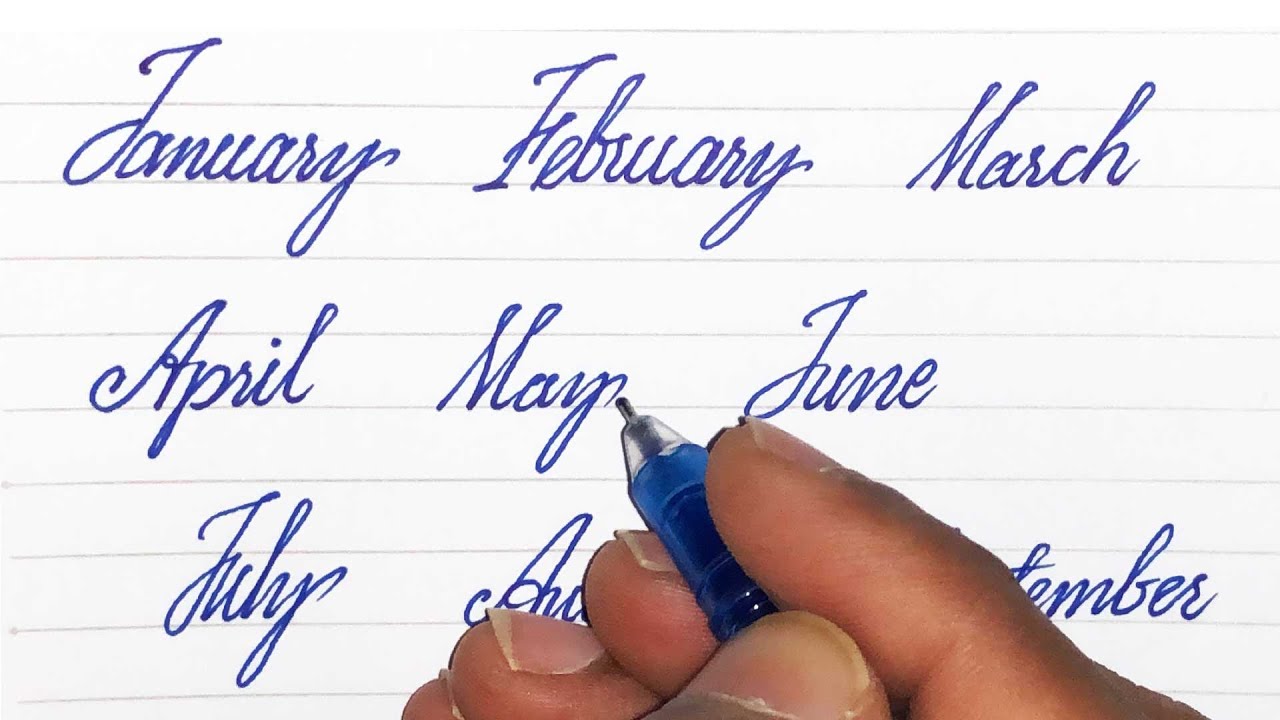 January February March
April May June
July